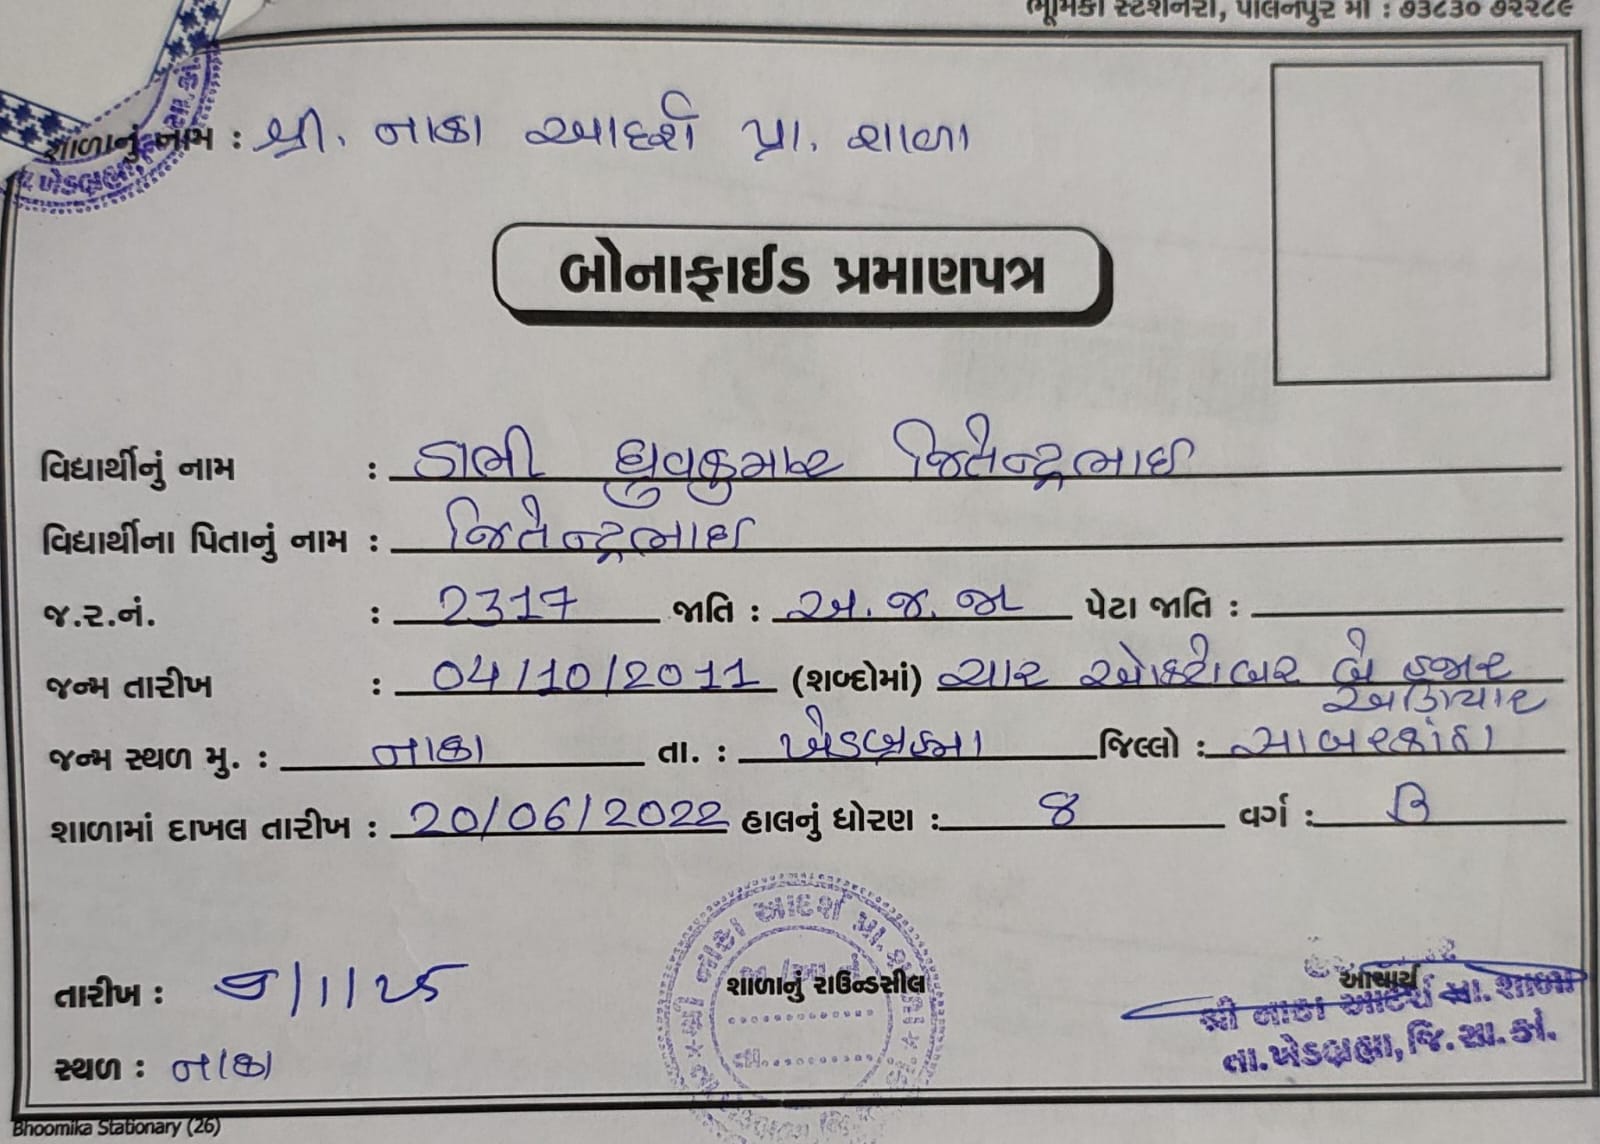 ભૂમિકા સ્ટેશનરી, પાલનપુર મો : ૭૩૮૩૦ ૭૨૨૮૯
શાળાનું નામ : શ્રી. નાકા આદર્શ પ્રા. શાળા
બોનાફાઈડ પ્રમાણપત્ર
વિદ્યાર્થીનું નામ : ડાભી ધ્રુવકુમાર જિતેન્દ્રભાઈ
વિદ્યાર્થીના પિતાનું નામ : જિતેન્દ્રભાઈ
જ.ર.નં. : 2317 જાતિ : અ.જ.જા પેટા જાતિ :
જન્મ તારીખ : 04/10/2011 (શબ્દોમાં) ચાર ઓક્ટોબર બે હજાર
અગિયાર
જન્મ સ્થળ મુ. : નાકા તા. : ખેડબ્રહ્મા જિલ્લો : સાબરકાંઠા
શાળામાં દાખલ તારીખ : 20/06/2022 હાલનું ધોરણ : 8 વર્ગ : B
તારીખ : ૭/1/25 શાળાનું રાઉન્ડસીલ આચાર્ય
શ્રી નાકા આદર્શ પ્રા. શાળા
તા.ખેડબ્રહ્મા, જિ.સા.કાં.
સ્થળ : નાકા
Bhoomika Stationary (26)